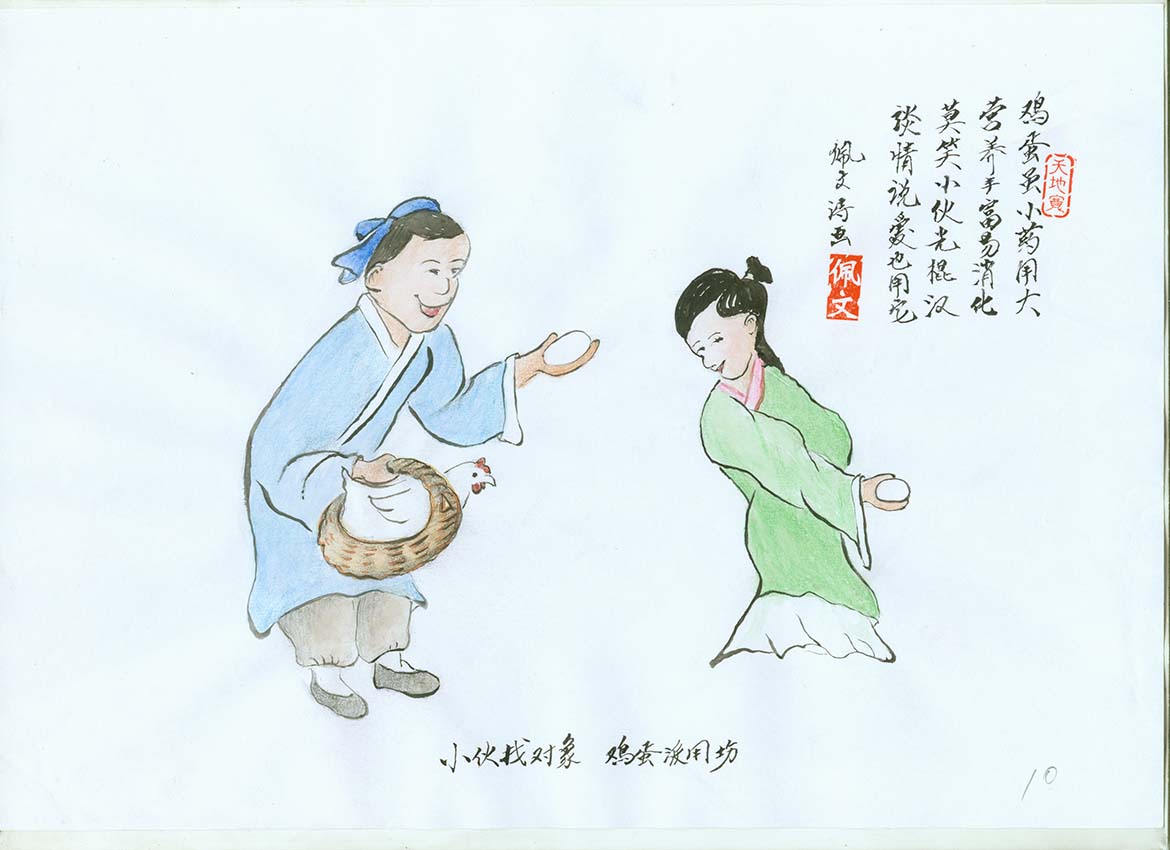 天地
鸡蛋虽小药用大
营养丰富易消化
莫笑小伙光棍汉
谈情说爱也用它
佩文诗画
佩文
小伙找对象 鸡蛋派用场
10